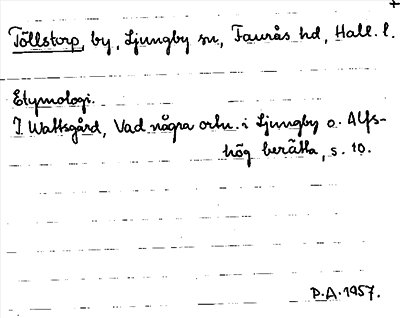 Töllstorp, by, Ljungby sn, Faurås hd, Hall. l.
Etymologi.
J. Wattsgård, Vad några ortn. i Ljungby o. Alfs-
hög berätta, s. 10.
P.A. 1957.